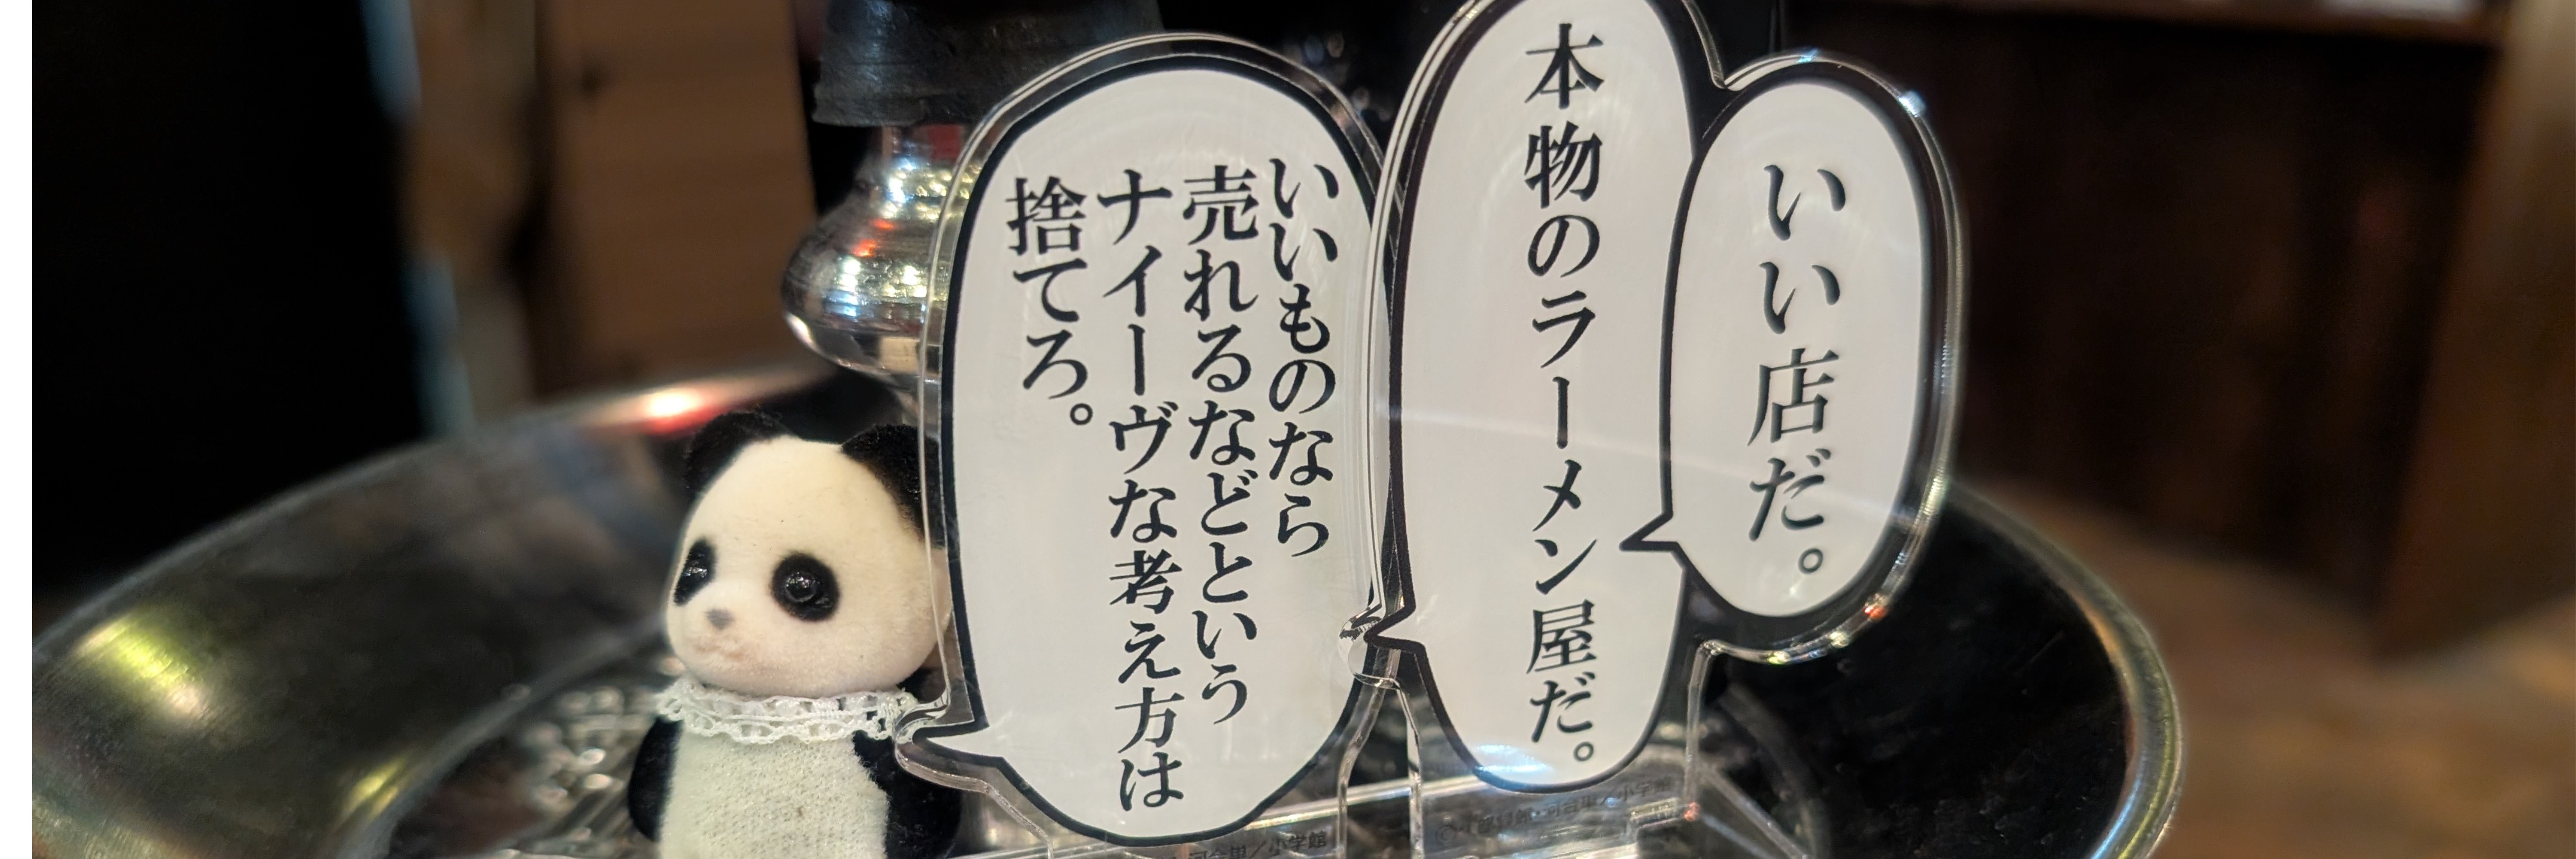 いい店だ。
本物のラーメン屋だ。
いいものなら
売れるなどという
ナイーヴな考え方は
捨てろ。
河合単／小学館